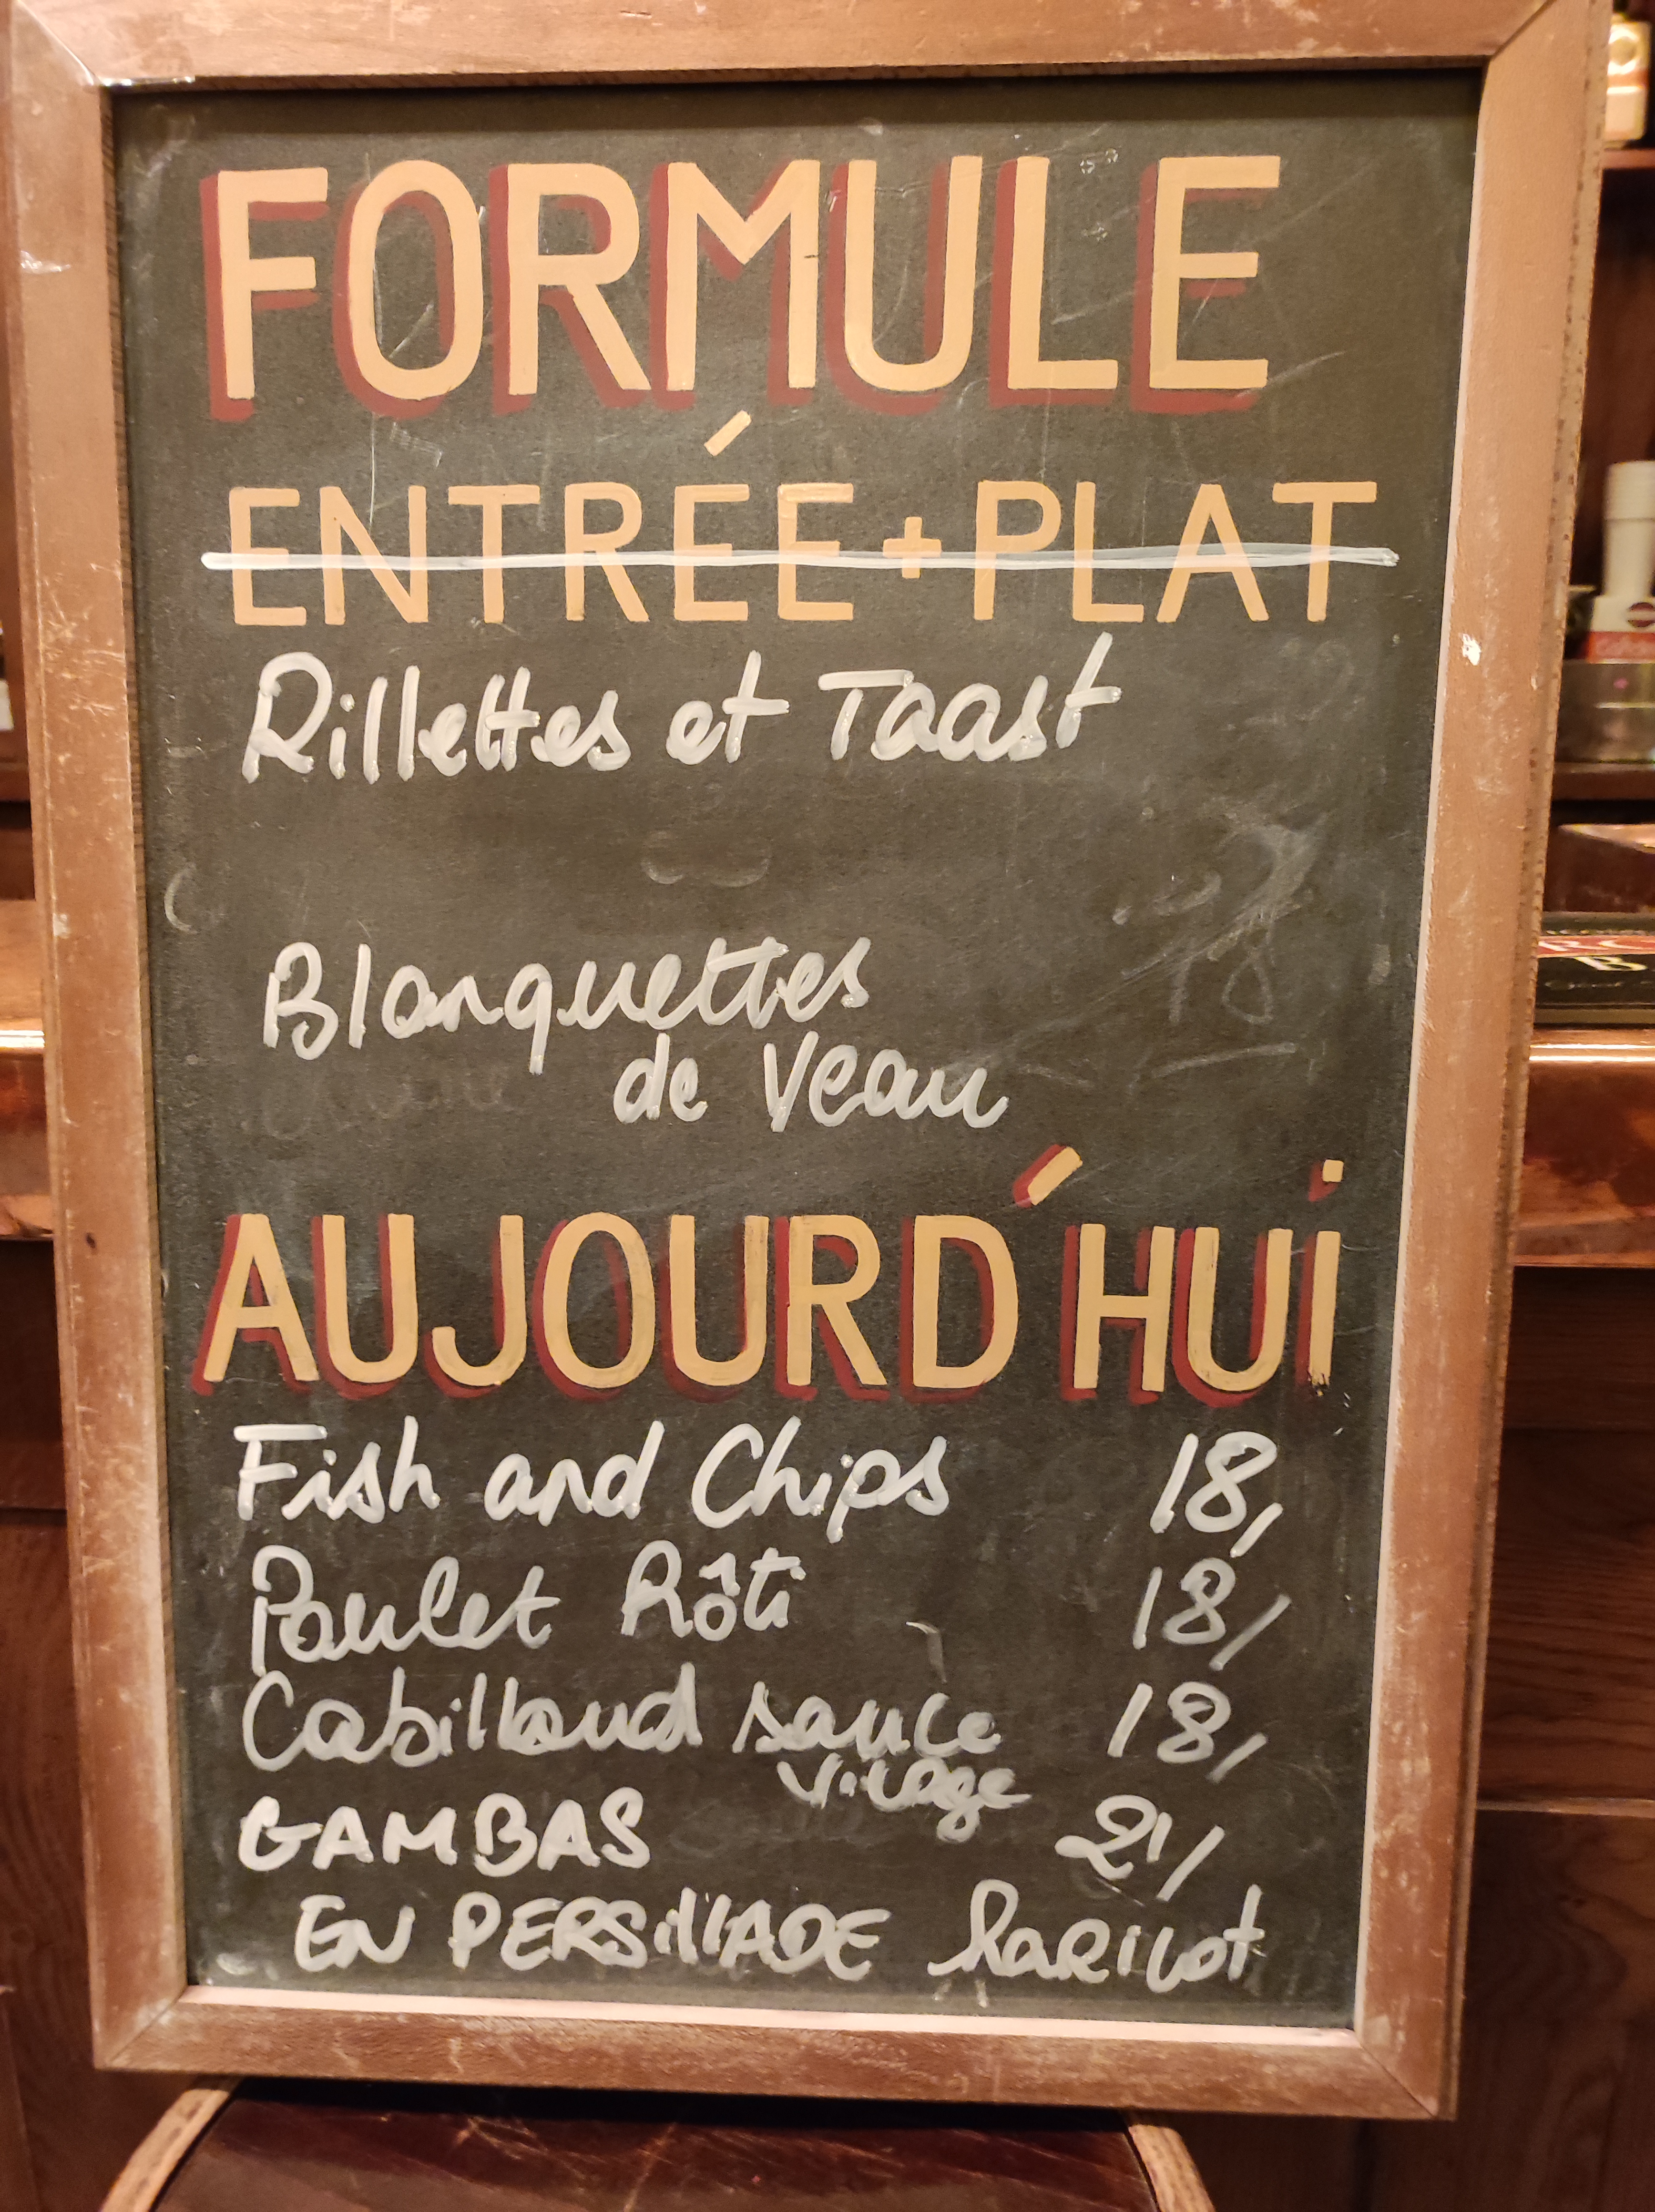 FORMULE
ENTRÉE + PLAT
Rillettes et Toast
Blanquettes
de Veau
AUJOURD'HUI
Fish and Chips 18,
Poulet Rôti 18/
Cabillaud sauce 18,
GAMBAS 21/
EN PERSillADE haRicot